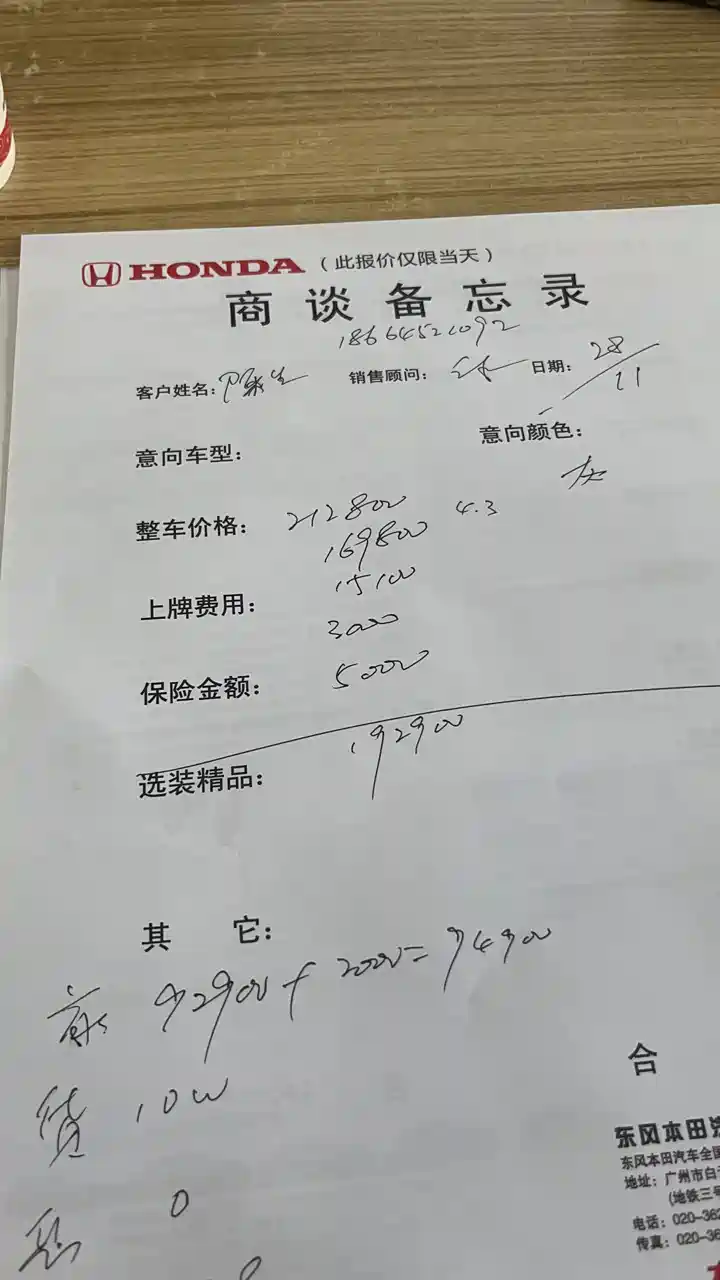 HONDA（此报价仅限当天）
商谈备忘录
18664521092
客户姓名：陈生 销售顾问： 日期：28/11
意向车型： 意向颜色：
灰
整车价格：212800
169800 4.3
15100
上牌费用：
3000
保险金额：5000
192900
选装精品：
其 它：
首 92900+2000=94900
贷 10W
息 0
合
东风本田汽
东风本田汽车全国
地址：广州市白
(地铁三号
电话：020-362
传真：020-36